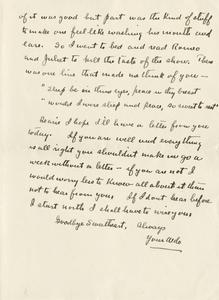 of it was good but part was the kind of stuff
to make one feel like washing his mouth and
ears. So I went to bed and read Romeo
and Juliet to kill the taste of the show. There
was one line that made me think of you —
"Sleep be in thine eyes, peace in thy breast
"Would I were sleep and peace, so sweet to rest"
Dear I hope I'll have a letter from you
today. If you are well and everything
is all right you shouldn't make me go a
week without a letter — if you are not I
would worry less to know all about it than
not to hear from you. If I don't hear before
I start north I shall have to wire you
Goodbye Sweetheart, Always
Your